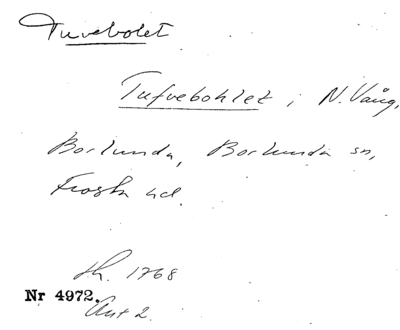 Tuvebolet
Tufvebohlet i N. Vång,
Borlunda, Borlunda sn,
Frosta hd.
Sk. 1768
Nr 4972.
Akt 2